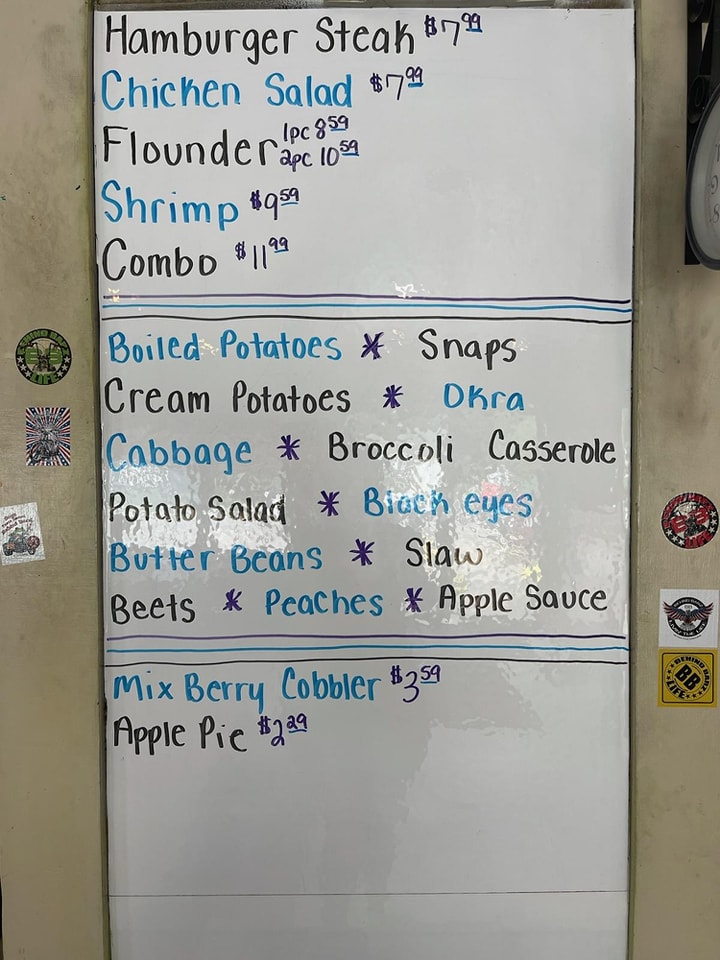 Hamburger Steak $7.99
Chicken Salad $7.99
Flounder 1pc 8.59
2pc 10.59
Shrimp $9.59
Combo $11.99
Boiled Potatoes * Snaps
Cream Potatoes * Okra
Cabbage * Broccoli Casserole
Potato Salad * Black eyes
Butter Beans * Slaw
Beets * Peaches * Apple Sauce
Mix Berry Cobbler $3.59
Apple Pie $2.29
BEHIND BARZ
LIFE
BB